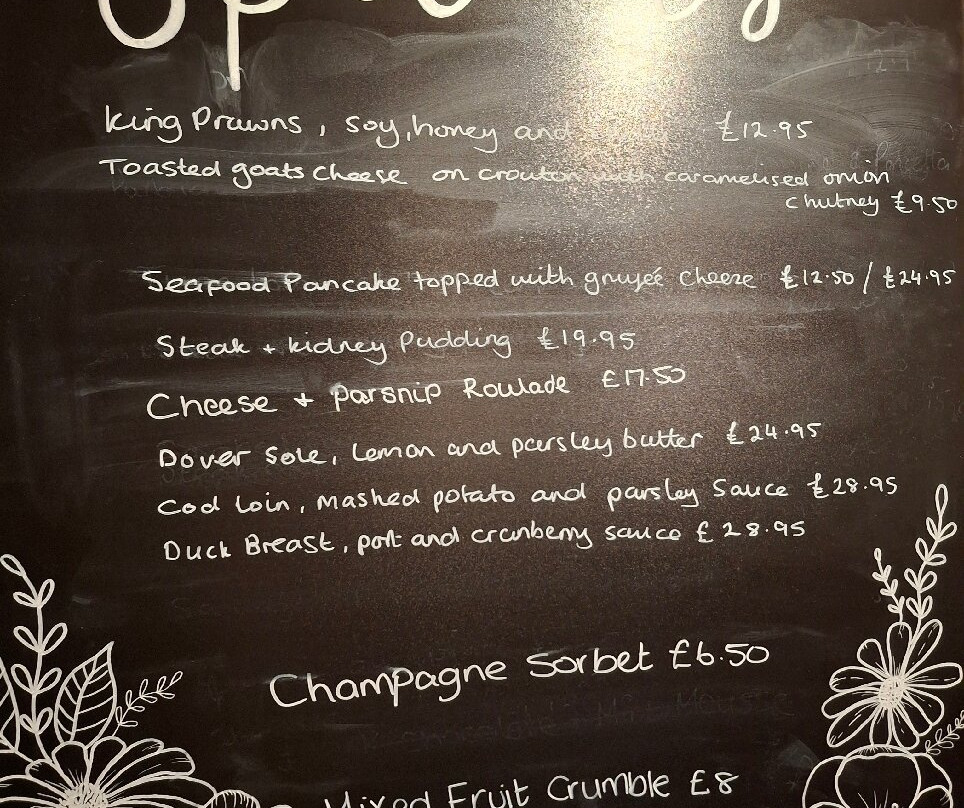 King Prawns, soy, honey and £12.95
Toasted goats cheese on crouton with caramelised onion
chutney £9.50
Seafood Pancake topped with gruyeé cheese £12.50 / £24.95
Steak + kidney Pudding £19.95
Cheese + parsnip Roulade £17.50
Dover Sole, Lemon and parsley butter £24.95
Cod Loin, Mashed potato and parsley Sauce £28.95
Duck Breast, port and cranberry sauce £28.95
Champagne Sorbet £6.50
Mixed Fruit Crumble £8